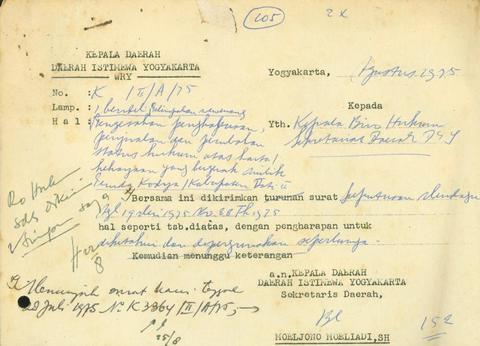 105
2 x
KEPALA DAERAH
DAERAH ISTIMEWA YOGYAKARTA
WRY
Yogyakarta, Agustus 1975
No. : K / II/A/75
Lamp. : 1 berkas
Hal : Pengesahan penghapusan,
penjualan dan perubahan
status hukum atas harta/
kekayaan yang berpihak milik
Pemda Kodya/Kabupaten Dati II
Kepada
Yth. Kepala Biro Hukum
Sekretariat Daerah DIY
Bersama ini dikirimkan turunan surat Keputusan Mendagri
Tgl 19 1975 No. 88 Th 1975
hal seperti tsb.diatas, dengan pengharapan untuk
diketahui dan dipergunakan seperlunya.
Kemudian menunggu keterangan
Ro Huk
sdh
simpan saja
Her
8
Menunjuk surat kami tanggal
28 Juli 1975 No K 3364/II/A/75,
25/8
a.n. KEPALA DAERAH
DAERAH ISTIMEWA YOGYAKARTA
Sekretaris Daerah,
MOELJONO MOELIADI, SH
152